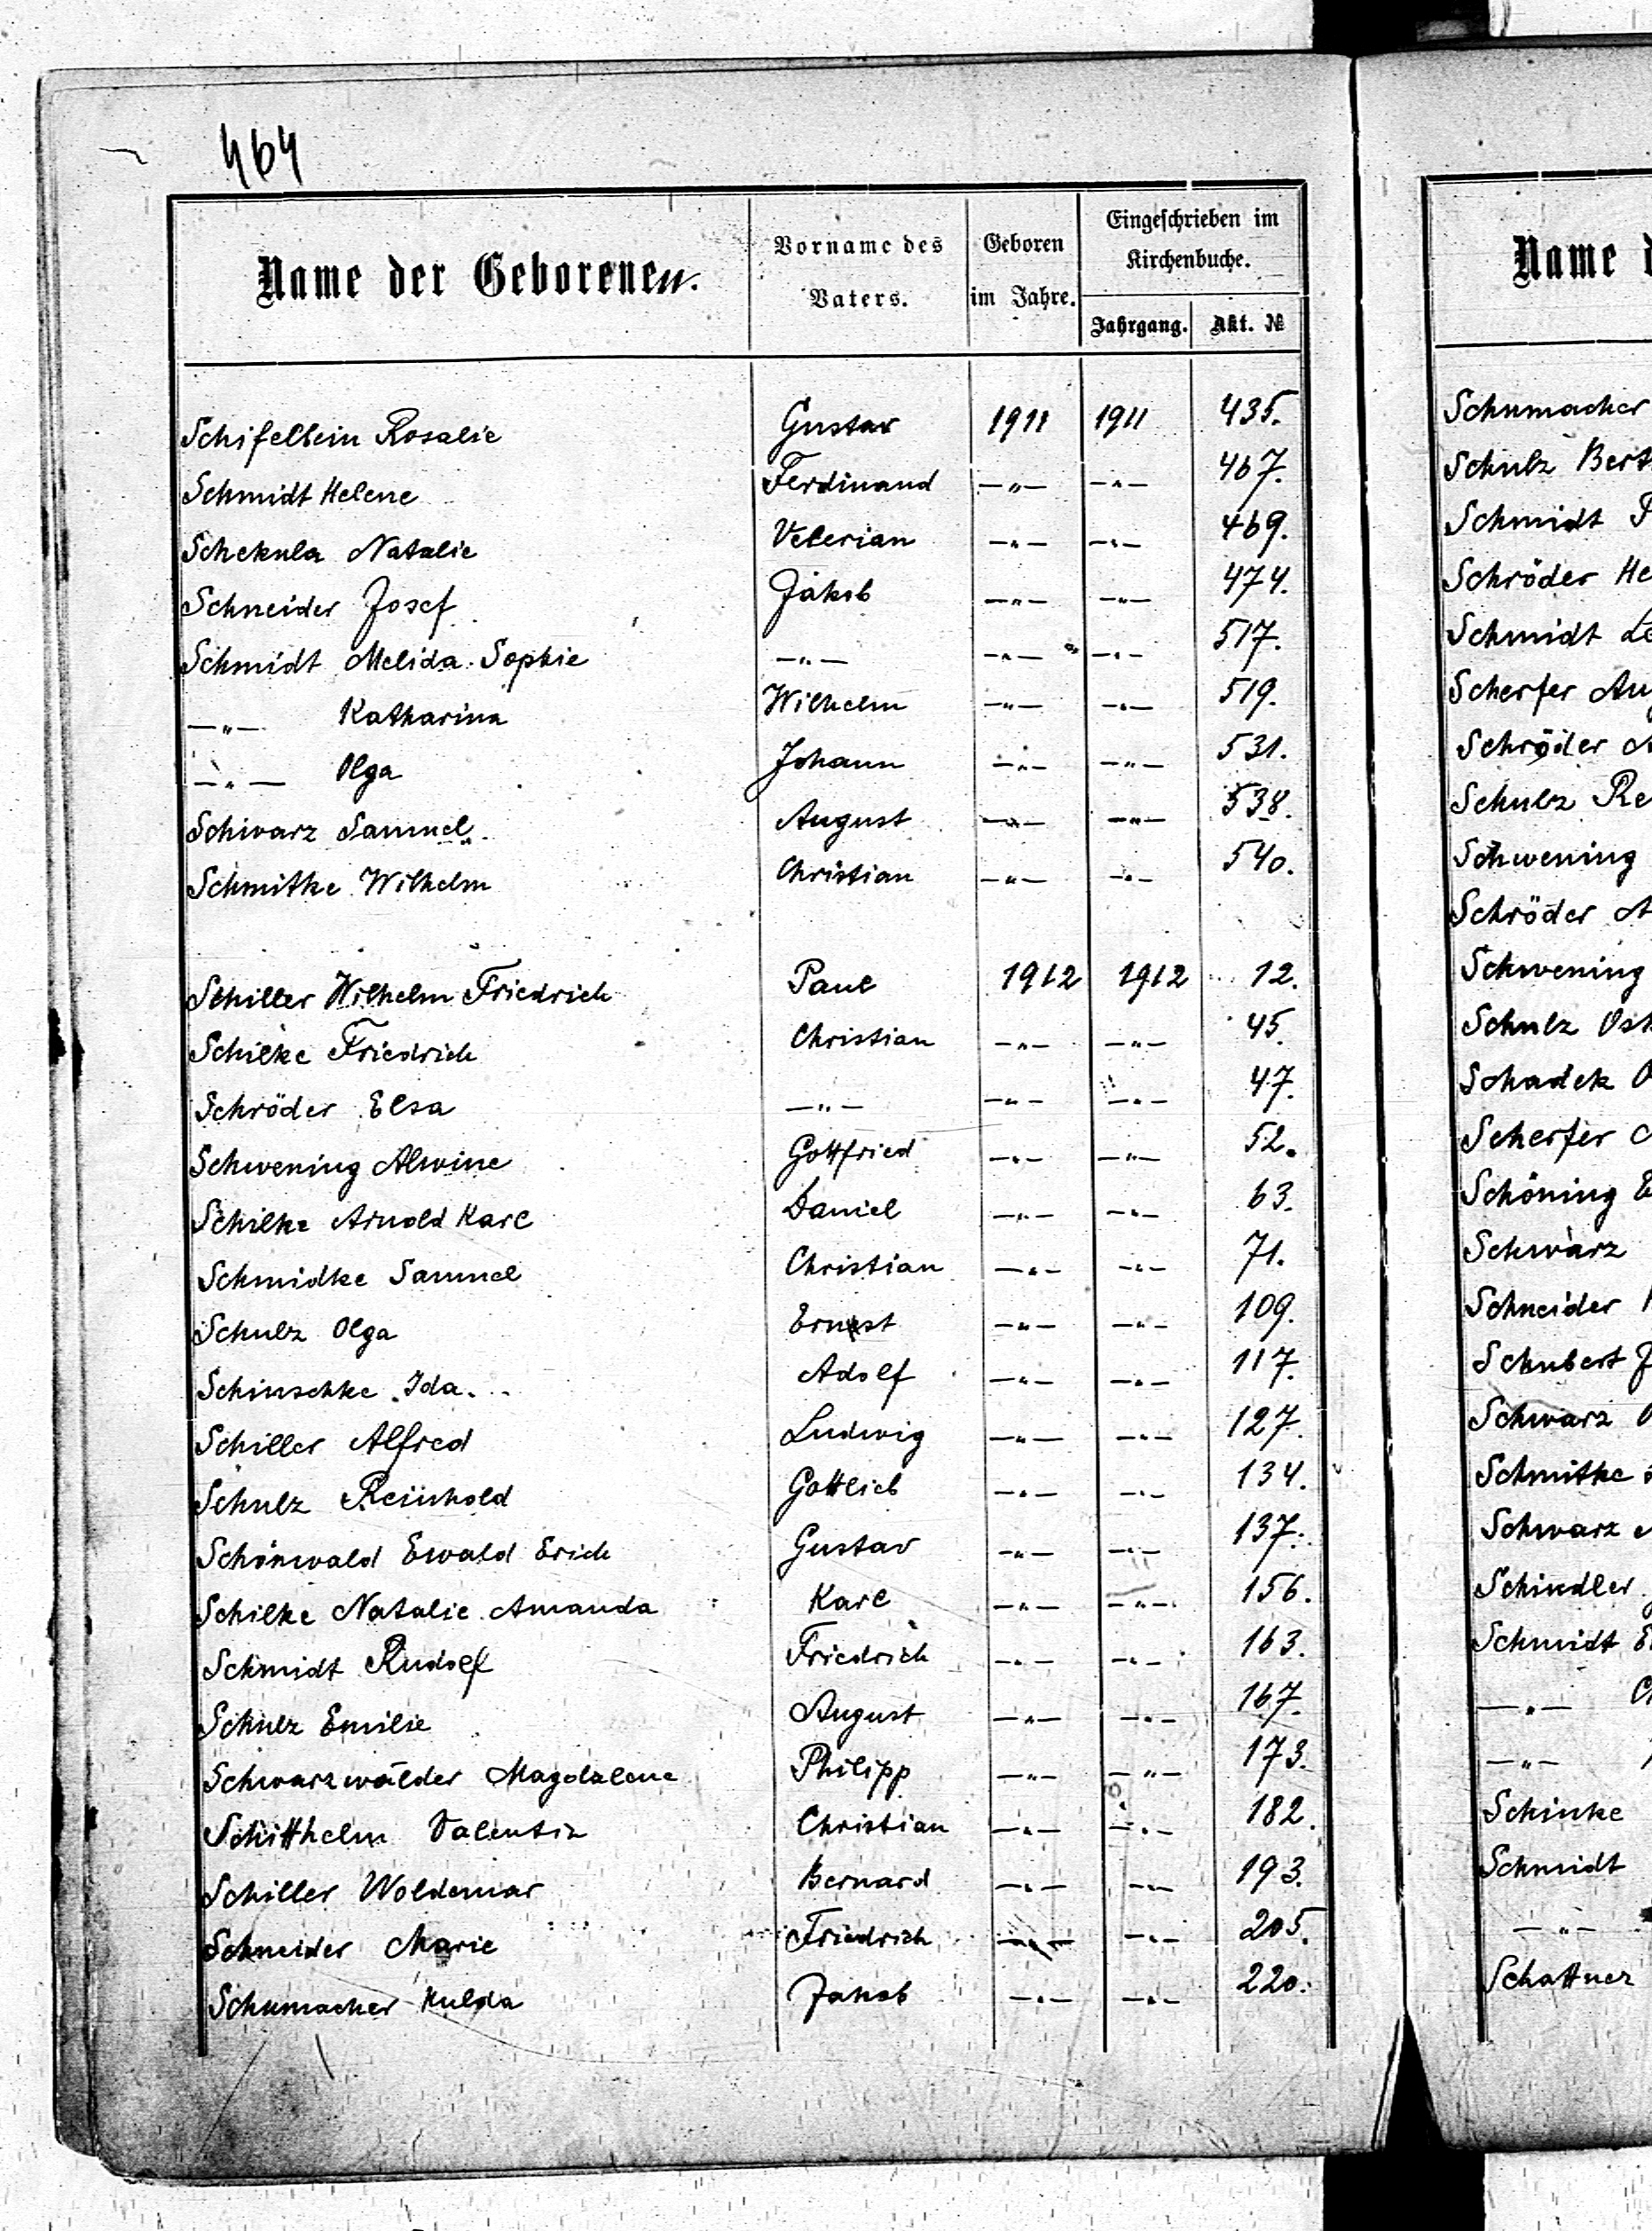 464
Name der Geborenen. Vorname des Vaters. Geboren im Jahre. Eingeschrieben im Kirchenbuche. Jahrgang. Akt. №
Schifelbein Rosalie Gustav 1911 1911 435.
Schmidt Helene Ferdinand —"— —"— 467.
Schekula Natalie Velerian —"— —"— 469.
Schneider Josef Jakob —"— —"— 474.
Schmidt Melida Sophie —"— —"— —"— 517.
—"— Katharina Wilhelm —"— —"— 519.
—"— Olga Johann —"— —"— 531.
Schwarz Samuel. August —"— —"— 538.
Schmitke Wilhelm Christian —"— —"— 540.
Schiller Wilhelm Friedrich Paul 1912 1912 12.
Schilke Friedrich Christian —"— —"— 45.
Schröder Elsa —"— —"— —"— 47.
Schwening Alwine Gottfried —"— —"— 52.
Schilke Arnold Karl Daniel —"— —"— 63.
Schmidke Samuel Christian —"— —"— 71.
Schulz Olga Ernest —"— —"— 109.
Schinschke Ida. Adolf —"— —"— 117.
Schiller Alfred Ludwig —"— —"— 127.
Schulz Reinhold Gottlieb —"— —"— 134.
Schönwald Ewald Erich Gustav —"— —"— 137.
Schilke Natalie Amanda Karl —"— —"— 156.
Schmidt Rudolf Friedrich —"— —"— 163.
Schulz Emilie August —"— —"— 167.
Schwarzwälder Magdalena Philipp —"— —"— 173.
Schitthelm Valentin Christian —"— —"— 182.
Schiller Woldemar Bernard —"— —"— 193.
Schneider Marie Friedrich —"— —"— 205.
Schumacher Hulda Jakob —"— —"— 220.
Name
Schumacher
Schulz
Schmidt
Schröder
Schmidt
Scherfer
Schröder
Schulz
Schwening
Schröder
Schwening
Schulz
Schadek
Scherfer
Schöning
Schwarz
Schneider
Schubert
Schwarz
Schmitke
Schwarz
Schindler
Schmidt
—"—
—"—
Schinke
Schmidt
—"—
Schattner